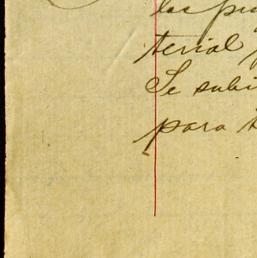 las pr
terial
Se subi
para t